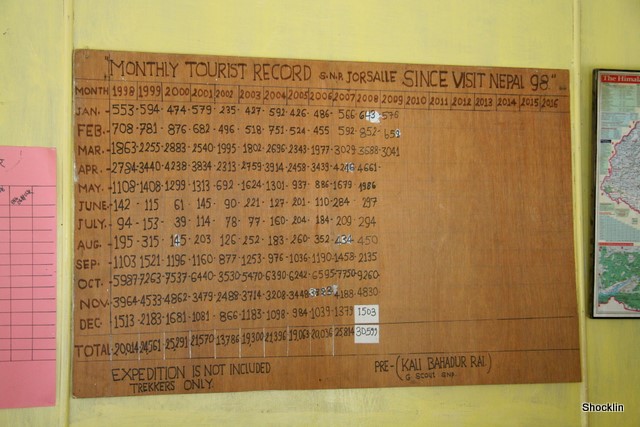 "MONTHLY TOURIST RECORD S.N.P. JORSALLE SINCE VISIT NEPAL 98"
MONTH 1998 1999 2000 2001 2002 2003 2004 2005 2006 2007 2008 2009 2010 2011 2012 2013 2014 2015 2016
JAN. 553 594 474 579 235 427 592 426 486 566 643 576
FEB. 708 781 876 682 496 518 751 524 455 592 852 653
MAR. 1863 2255 2883 2540 1995 1802 2696 2343 1977 3029 3688 3041
APR. 2784 3440 4238 3834 2313 2759 3914 2458 3439 4246 4661
MAY. 1108 1408 1299 1313 692 1624 1301 937 886 1679 1986
JUNE 142 115 61 145 90 221 127 201 110 284 297
JULY. 94 157 39 114 78 77 160 204 184 209 294
AUG. 195 315 145 203 126 252 183 260 352 434 450
SEP. 1103 1521 1196 1160 877 1253 976 1036 1190 1458 2135
OCT. 5987 7263 7537 6440 3530 5470 6390 6242 6595 7750 9260
NOV. 3964 4533 4862 3479 2488 3714 3208 3448 4188 4830
DEC 1513 2183 1681 1081 866 1183 1098 984 1039 1379 1503
TOTAL 20,014 24,561 25,291 21570 13786 19300 21,396 19,063 20,036 25814 30,599
EXPEDITION IS NOT INCLUDED
TREKKERS ONLY.
PRE- (KALI BAHADUR RAI.)
G. SCOUT
The Himal
Shocklin